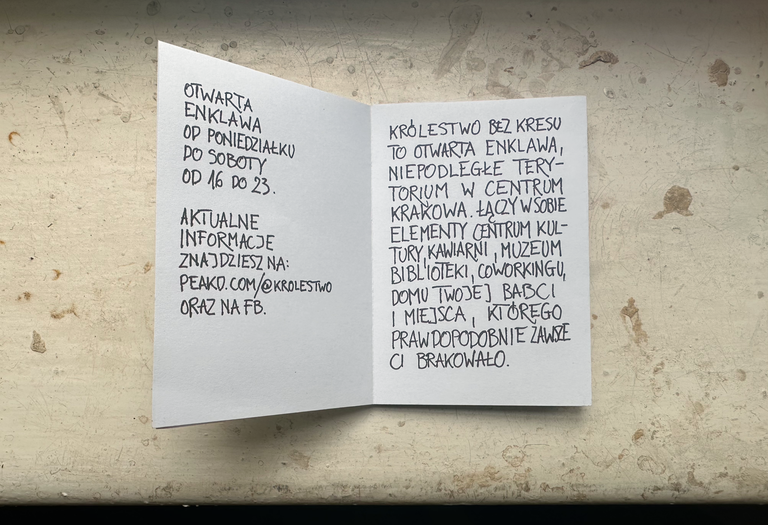 OTWARTA
ENKLAWA
OD PONIEDZIAŁKU
DO SOBOTY
OD 16 DO 23.
AKTUALNE
INFORMACJE
ZNAJDZIESZ NA:
PEAKD.COM/@KROLESTWO
ORAZ NA FB.
KRÓLESTWO BEZ KRESU
TO OTWARTA ENKLAWA,
NIEPODLEGŁE TERY-
TORIUM W CENTRUM
KRAKOWA. ŁĄCZY W SOBIE
ELEMENTY CENTRUM KUL-
TURY KAWIARNI, MUZEUM
BIBLIOTEKI, COWORKINGU,
DOMU TWOJEJ BABCI
I MIEJSCA, KTÓREGO
PRAWDOPODOBNIE ZAWSZE
CI BRAKOWAŁO.